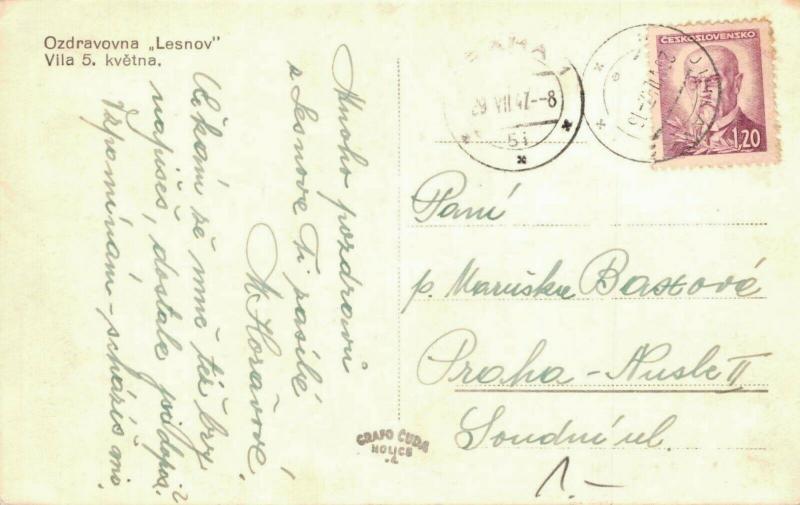 Ozdravovna „Lesnov"
Vila 5. května.
Mnoho pozdravů
z Lesnova Ti posílá
M.
Čekám že mne též brzy
napíšeš, dostala
Vzpomínám – scházíš mi.
29 VII 47.--8
ČESKOSLOVENSKO
1,20
Paní
p. Marušku Baxová
Praha – Nusle II
Soudní ul.
GRAFO ČUDA
HOLICE
1.-